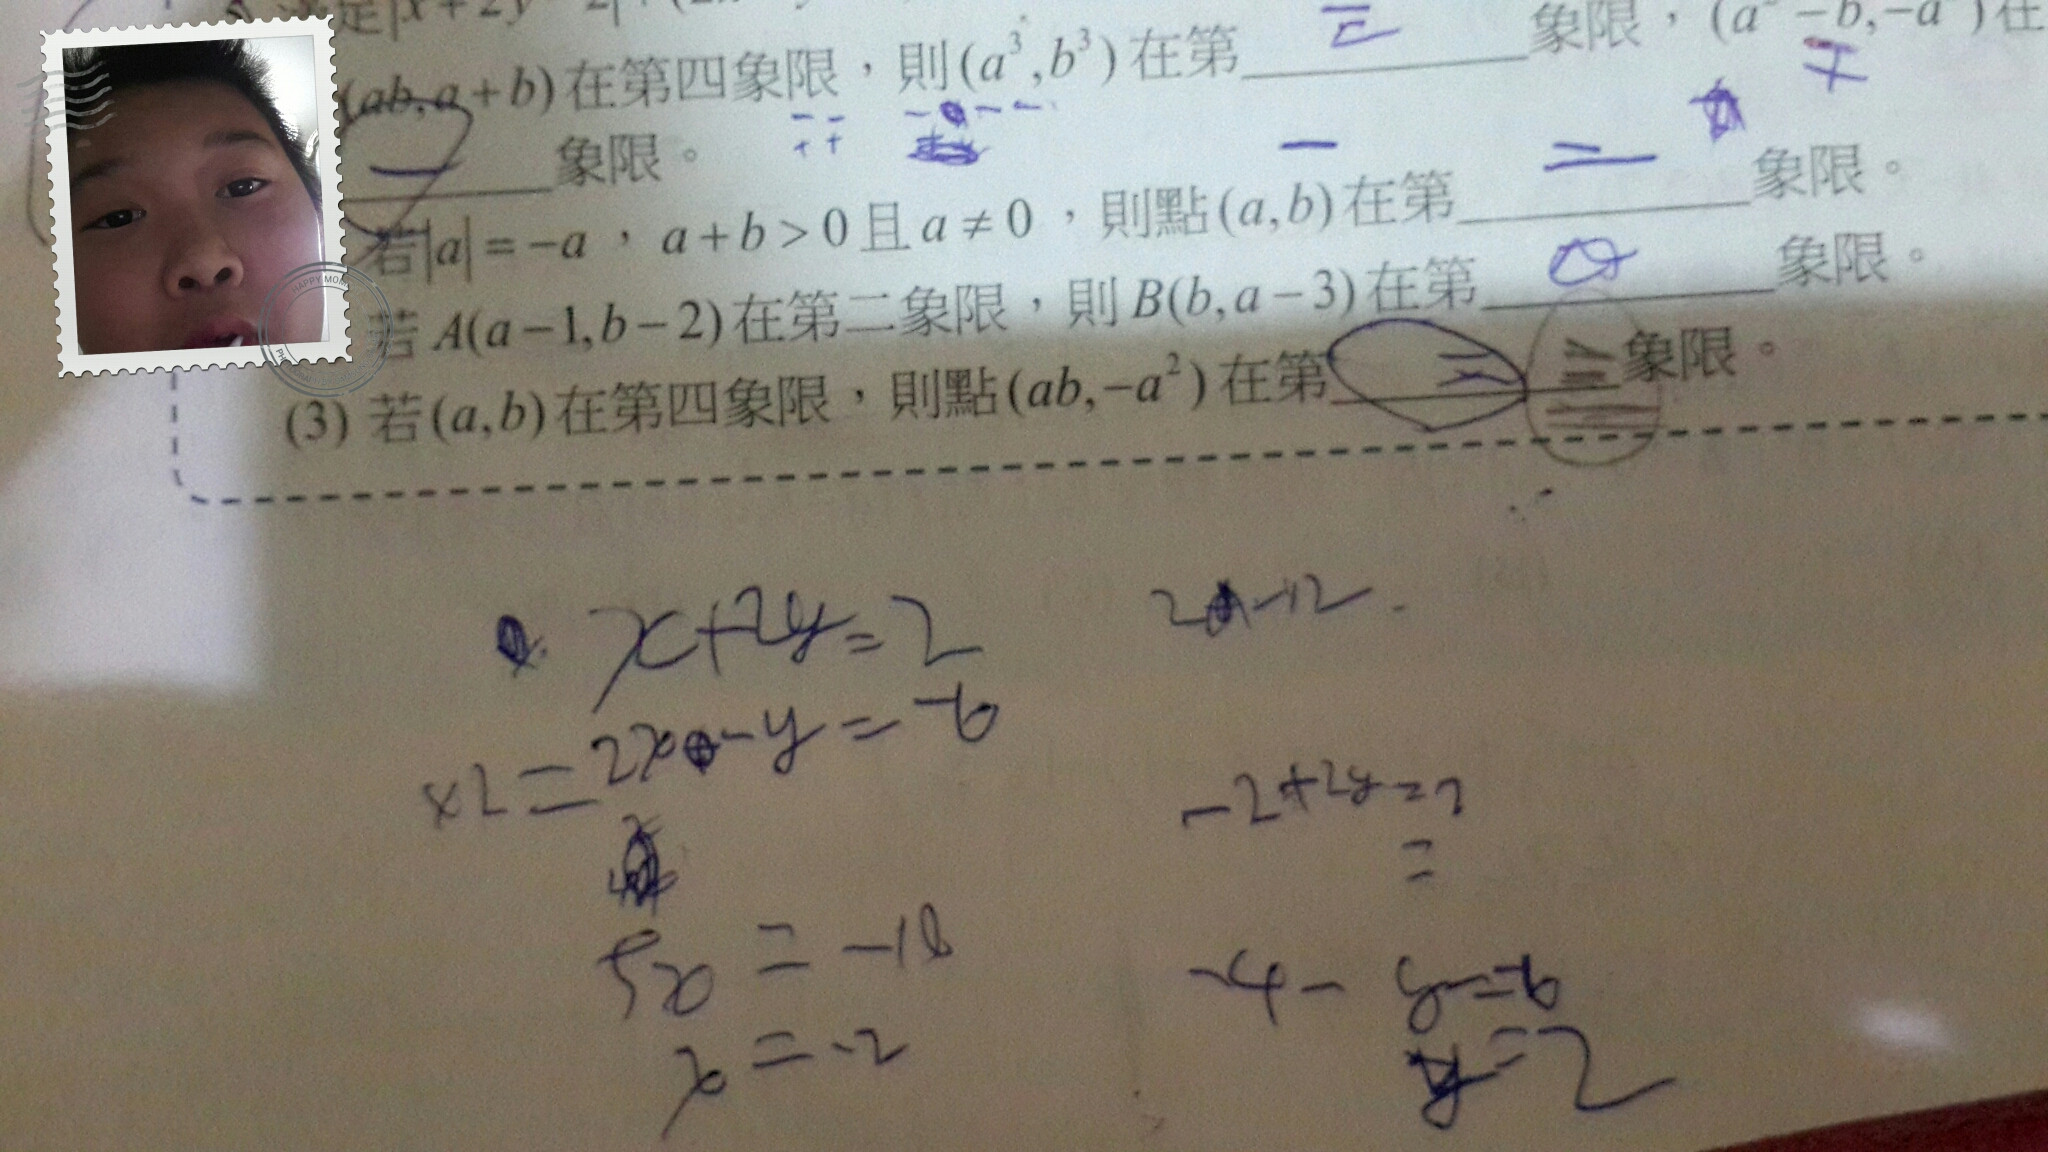 足|x+2y
(ab,a+b)在第四象限，則(a³,b³)在第 三 象限，(a²-b,-a²)在
象限。
若|a|=-a，a+b>0且a≠0，則點(a,b)在第 二 象限。
若A(a-1,b-2)在第二象限，則B(b,a-3)在第 象限。
(3) 若(a,b)在第四象限，則點(ab,-a²)在第 三 象限。
x+2y=2
2x-y=-6
x2=
5x = -10
x = -2
-2+2y=2
=
-4- y=-6
y=2
HAPPY MOM